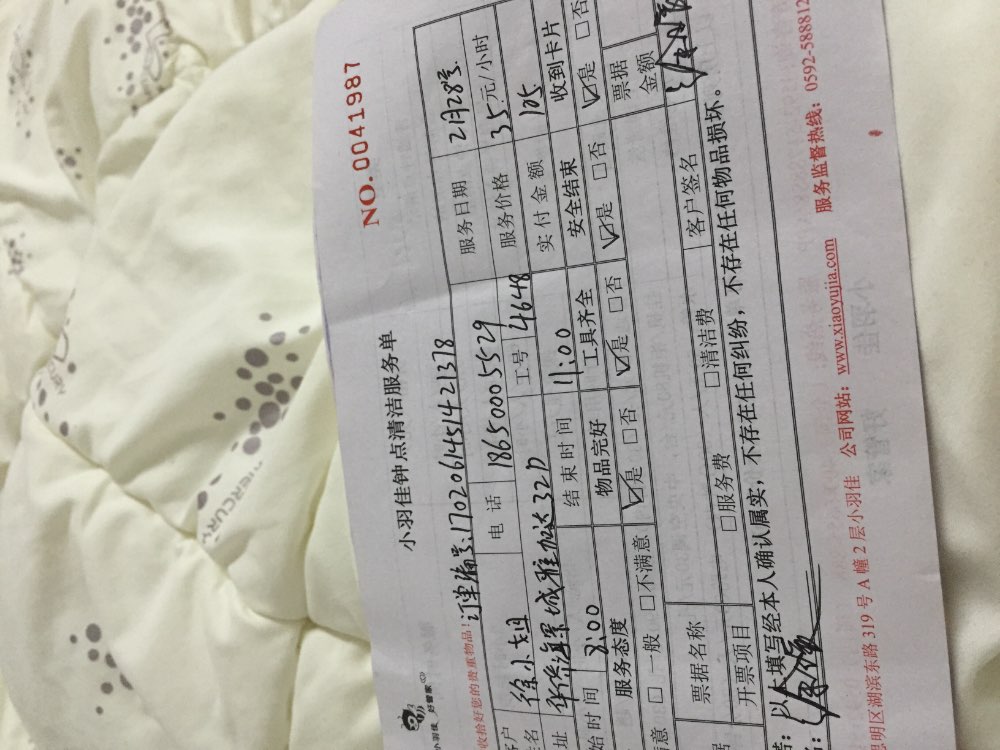 小羽佳 好管家
小羽佳钟点清洁服务单
NO.0041987
收拾好您的贵重物品! 订单编号:1702061451421378
客户 徐小姐 电话 18650005529 服务日期 2月28号
姓名 工号 4648 服务价格 35元/小时
址 32D 实付金额 105
始时间 8:00 结束时间 11:00
服务态度 物品完好 工具齐全 安全结束 收到卡片
满意 □一般 □不满意 ☑是 □否 ☑是 □否 ☑是 □否 ☑是 □否
据 票据名称 □服务费 □清洁费 票据金额
开票项目 客户签名
以上填写经本人确认属实,不存在任何纠纷,不存在任何物品损坏。
思明区湖滨东路319号A幢2层小羽佳 公司网站:www.xiaoyujia.com 服务监督热线:0592-5888812
MERCURY